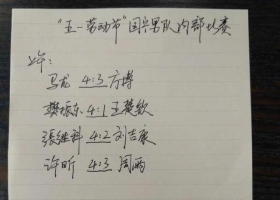 “五一劳动节”国乒男队内部比赛
上午:
马龙 4:3 方博
樊振东 4:1 王楚钦
張继科 4:2 刘吉康
许昕 4:3 周雨